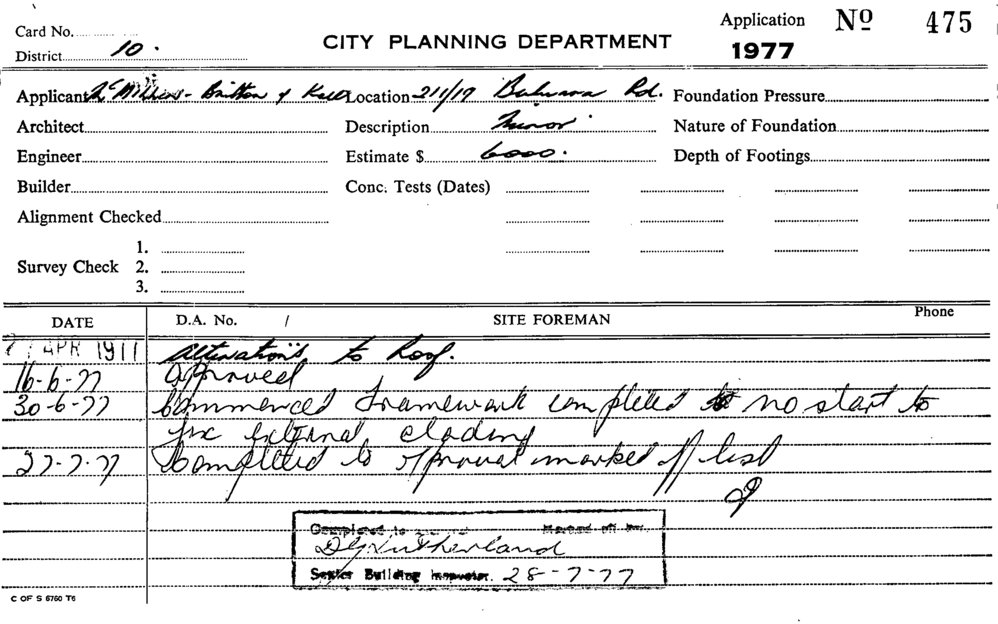 Card No.
District 10.
CITY PLANNING DEPARTMENT
Application Nº 475
1977
Applicant McMillan - Britton & Kell Location 211/19 Bulwara Rd. Foundation Pressure
Architect Description Minor Nature of Foundation
Engineer Estimate $ 6000. Depth of Footings
Builder Conc. Tests (Dates)
Alignment Checked
1.
Survey Check 2.
3.
DATE D.A. No. / SITE FOREMAN Phone
APR 1977 Alterations to Roof.
16-6-77 Approved
30-6-77 Commenced framework completed no start to
fix external clading
27-7-77 Completed to approval marked off list
Completed to Marked off
D G Sutherland
Senior Building Inspector. 28-7-77
C OF S 6760 T6